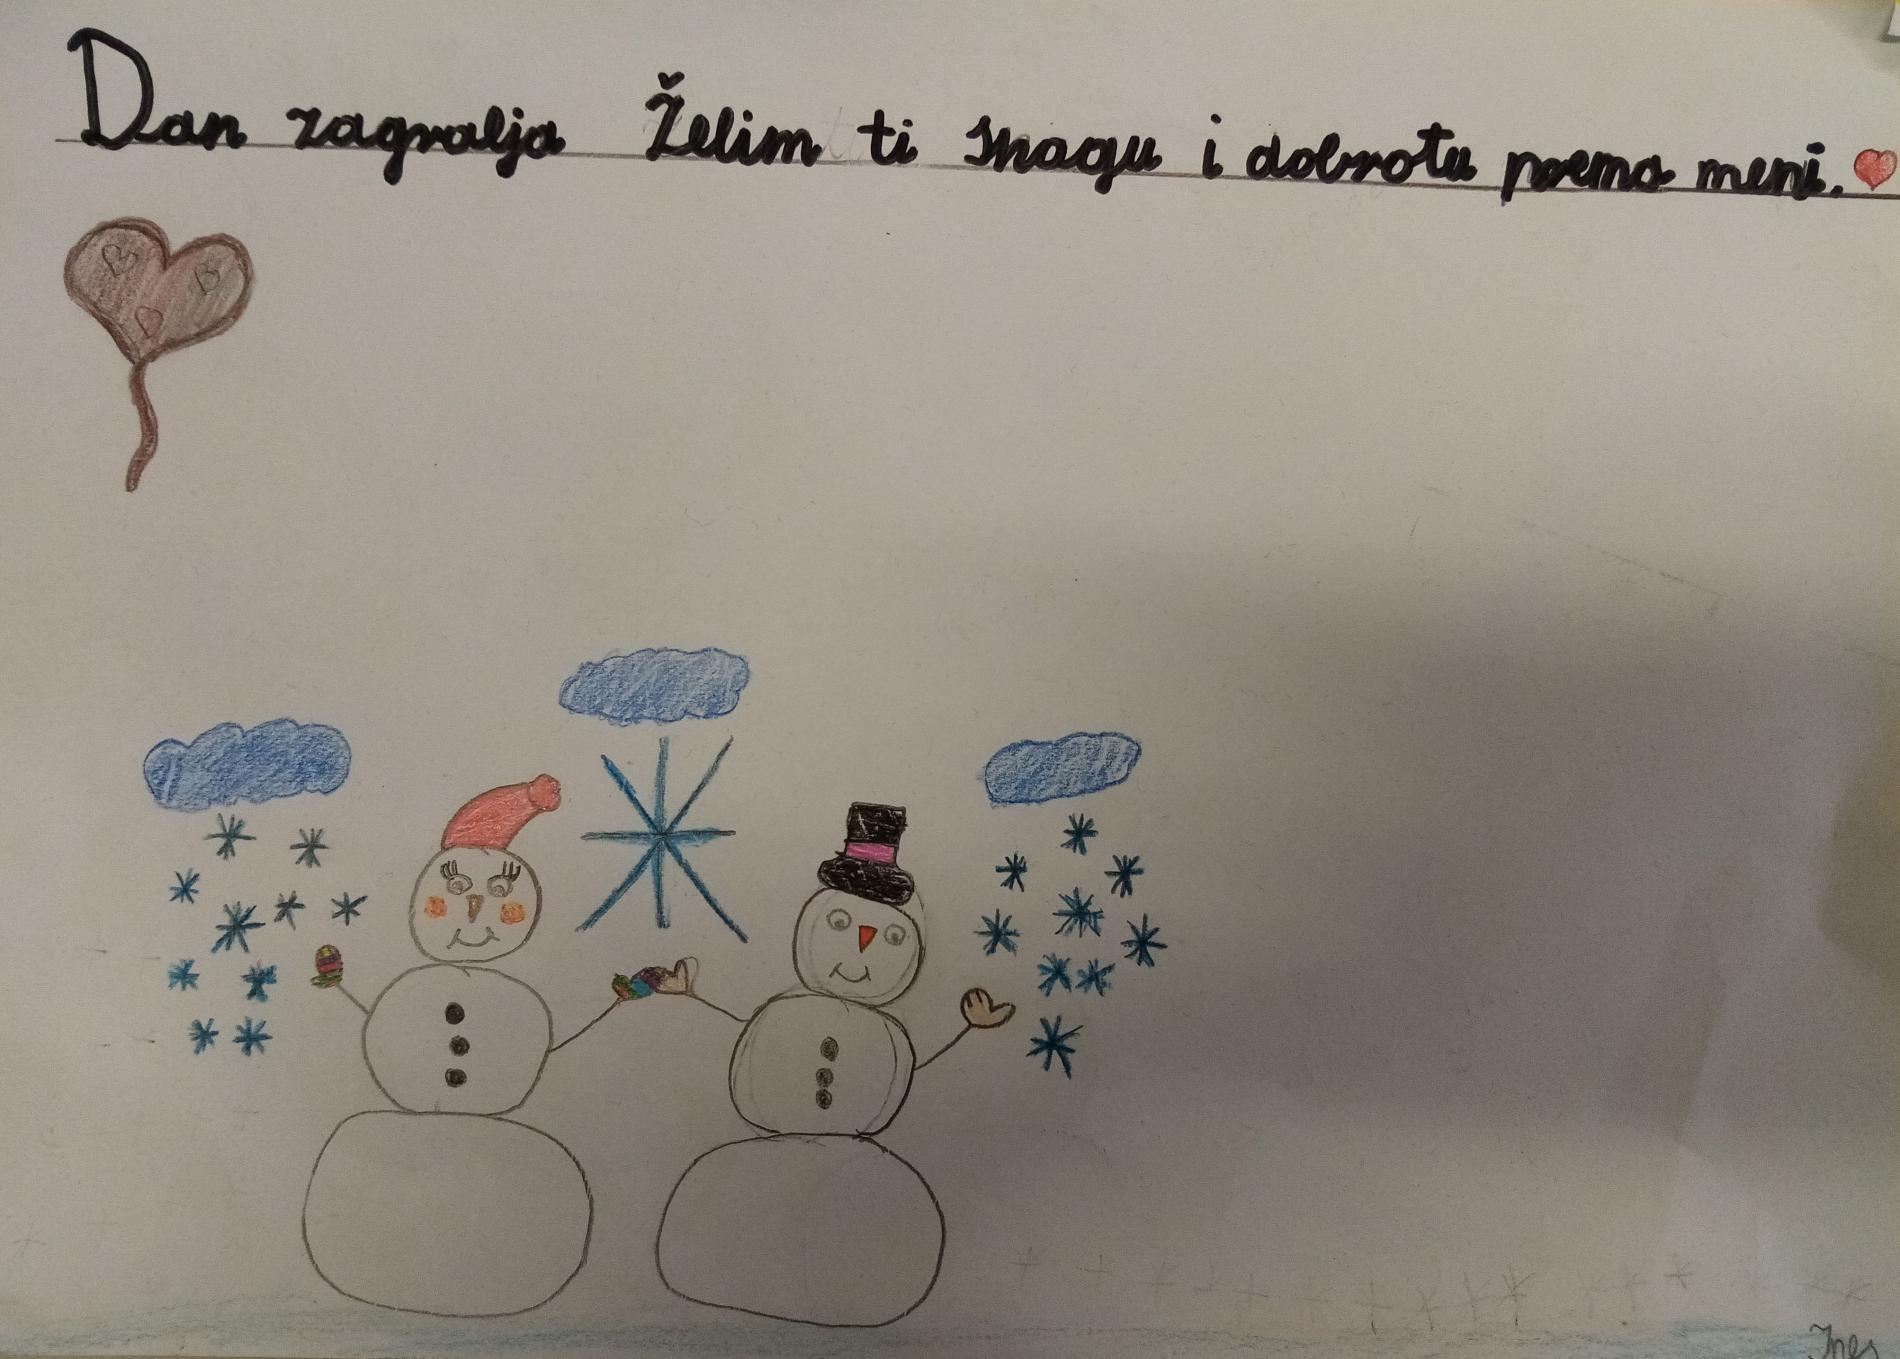 Dan zagralja Želim ti snagu i dobrotu prema meni.
Ines